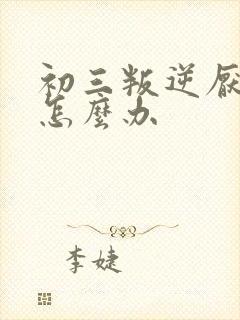 初三叛逆厌
怎麼办
李婕